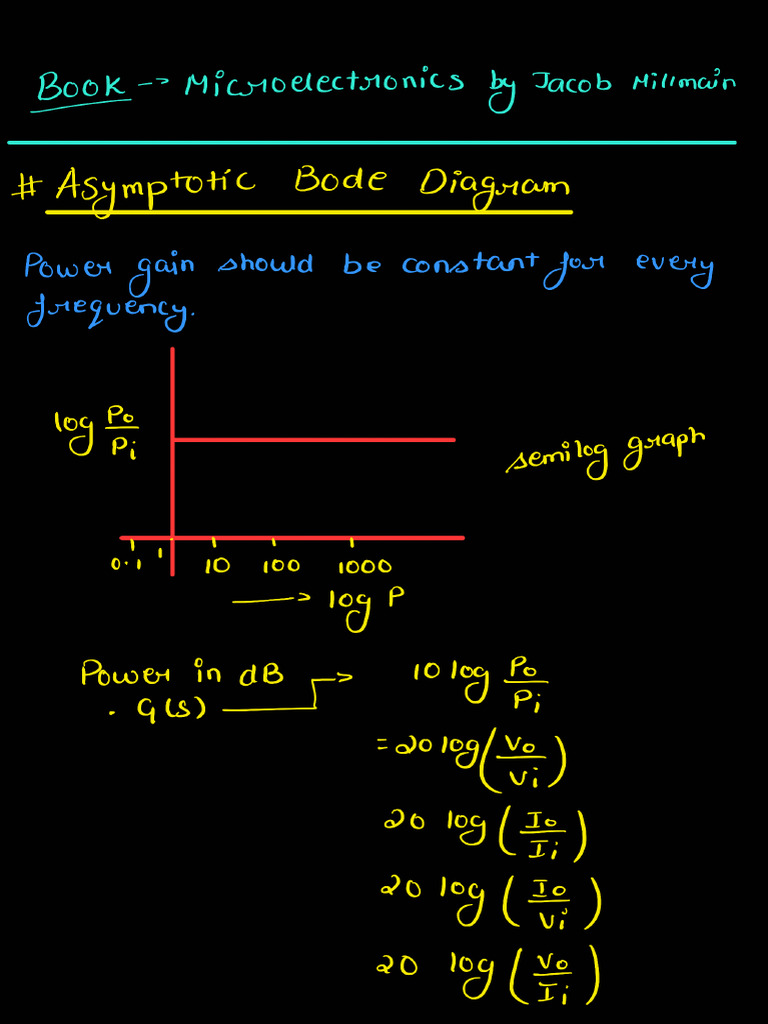 Book → Microelectronics by Jacob Millmain
# Asymptotic Bode Diagram
Power gain should be constant for every
frequency.
log Po/Pi
semilog graph
0.1 1 10 100 1000
→ log P
Power in dB → 10 log Po/Pi
. G(s)
= 20 log (Vo/Vi)
20 log (Io/Ii)
20 log (Io/Vi)
20 log (Vo/Ii)